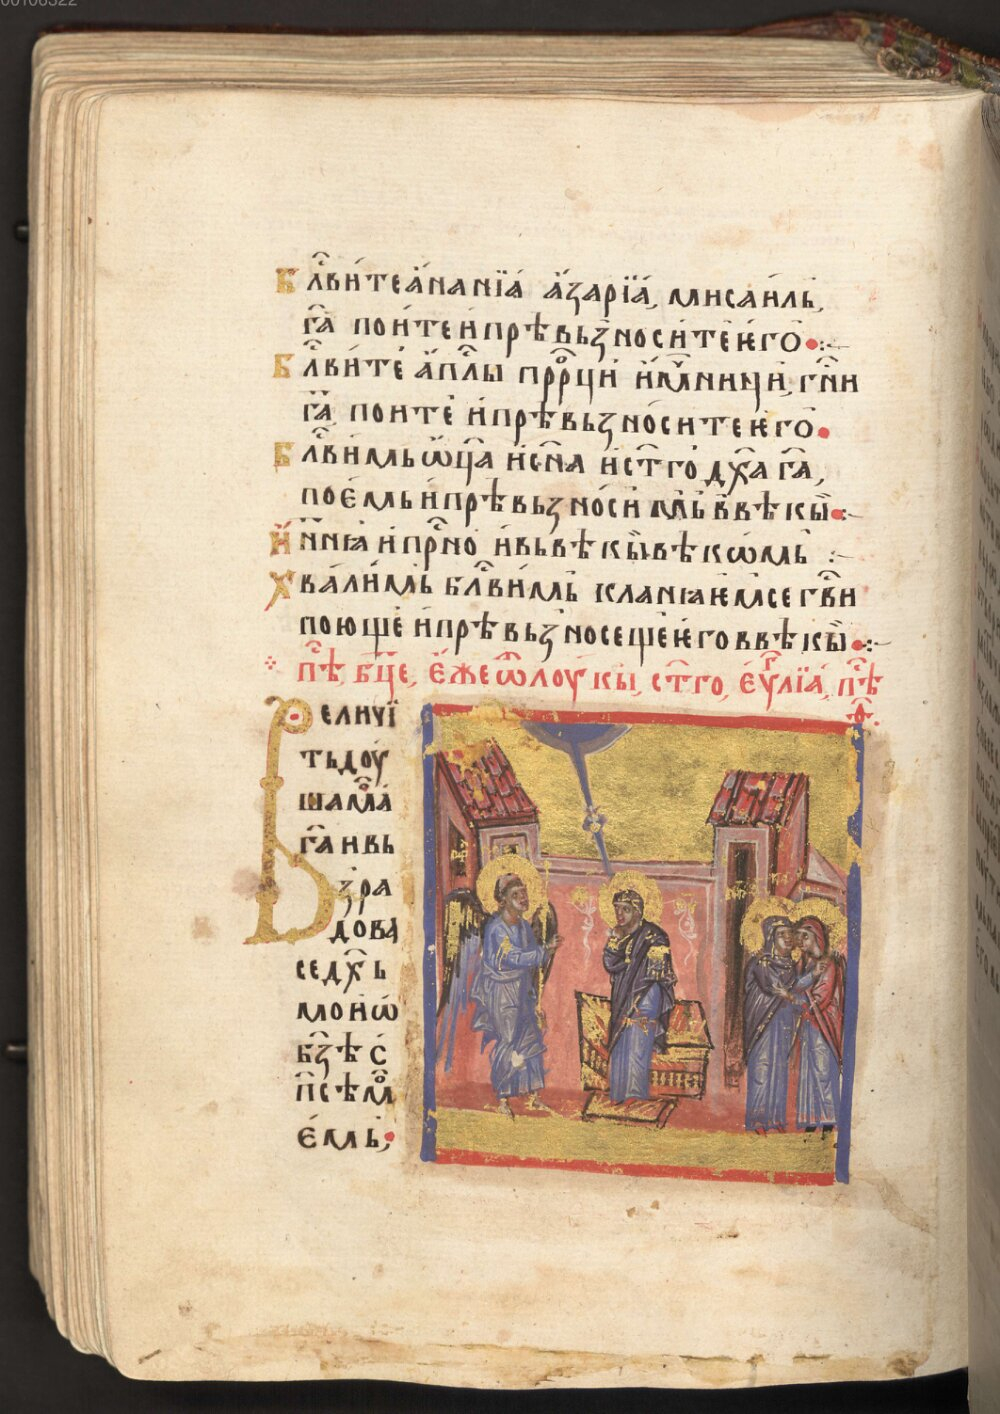 00106322
Бл҃ви́те а҆нанїа́ а҆́зарїа́, мисаи́ль,
га҃ пои́те и҆ прѣвьзноси́те ѥ҆го̀
Бл҃ви́те а҆пⷭ҇лы прⷪ҇рци и҆ мⷱ҇ници, гн҃и
га҃ пои́те и҆ прѣвьзно́сите ѥ҆го̀
Бл҃ви́мь ѡ҆ц҃а и҆ сн҃а и҆ ст҃го дх҃а га҃,
пое́мь и҆ прѣвьзно́симь в вѣкы̀
И҆ нн҃ꙗ и҆ прⷭ҇но и҆ вь вѣкы̀ вѣкѡ́мь
Хвали́мь бл҃ви́мь кланꙗѥмсе гв҃и
поюще и҆ прѣвьзносеще ѥ҆го в вѣкы̀
пⷭ҇ѣ бц҃е, е҆́же ѿ лоукы, ст҃го, еѵⷢ҇лїа, пⷭ҇ѣ
ѳ҃
Величї
ть доу
ша моа̀
га҃ и вь
зра
дова
се дх҃ь
мои ѡ
бз҃ѣ с
пс҃ѣ мⷪ
е́мь